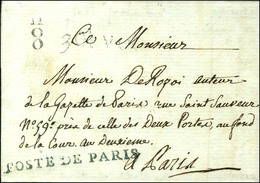 11
8
Ce Monsieur
Monsieur DeRozoi auteur
de la Gazette de Paris rue Saint Sauveur
N° 59 près de celle des Deux Portes, au fond
de la Cour, au Deuxieme.
POSTE DE PARIS
A Paris